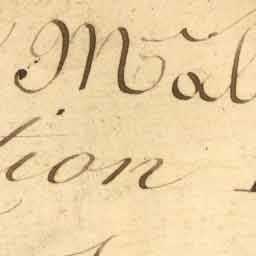 Mal
tion